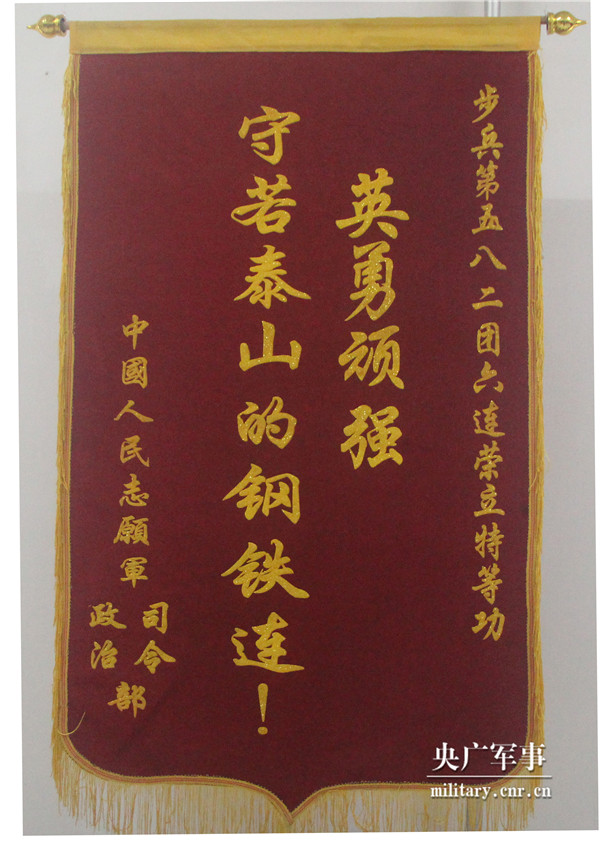 步兵第五八二团六连荣立特等功
英勇顽强
守若泰山的钢铁连！
中國人民志願軍
司令
政治
部
央广军事
military.cnr.cn